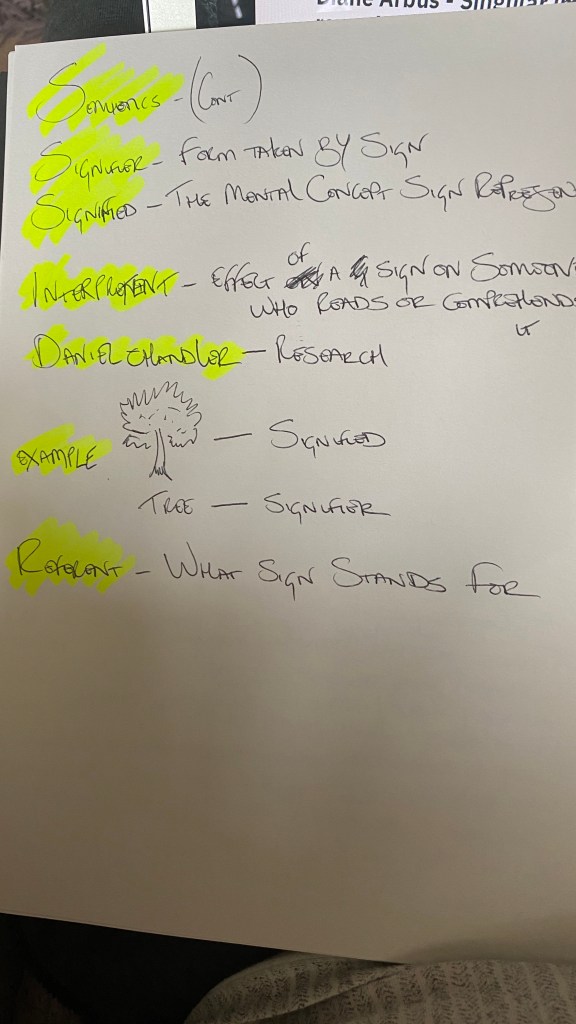 Diane Arbus - Singular
SEMIOTICS - (CONT)
SIGNIFIER - FORM TAKEN BY SIGN
SIGNIFIED - THE MENTAL CONCEPT SIGN REPRESEN
INTERPRETENT - EFFECT of A SIGN ON SOMEONE
WHO READS OR COMPREHENDS
IT
DANIEL CHANDLER - RESEARCH
EXAMPLE — SIGNIFIED
TREE — SIGNIFIER
REFERENT - WHAT SIGN STANDS FOR